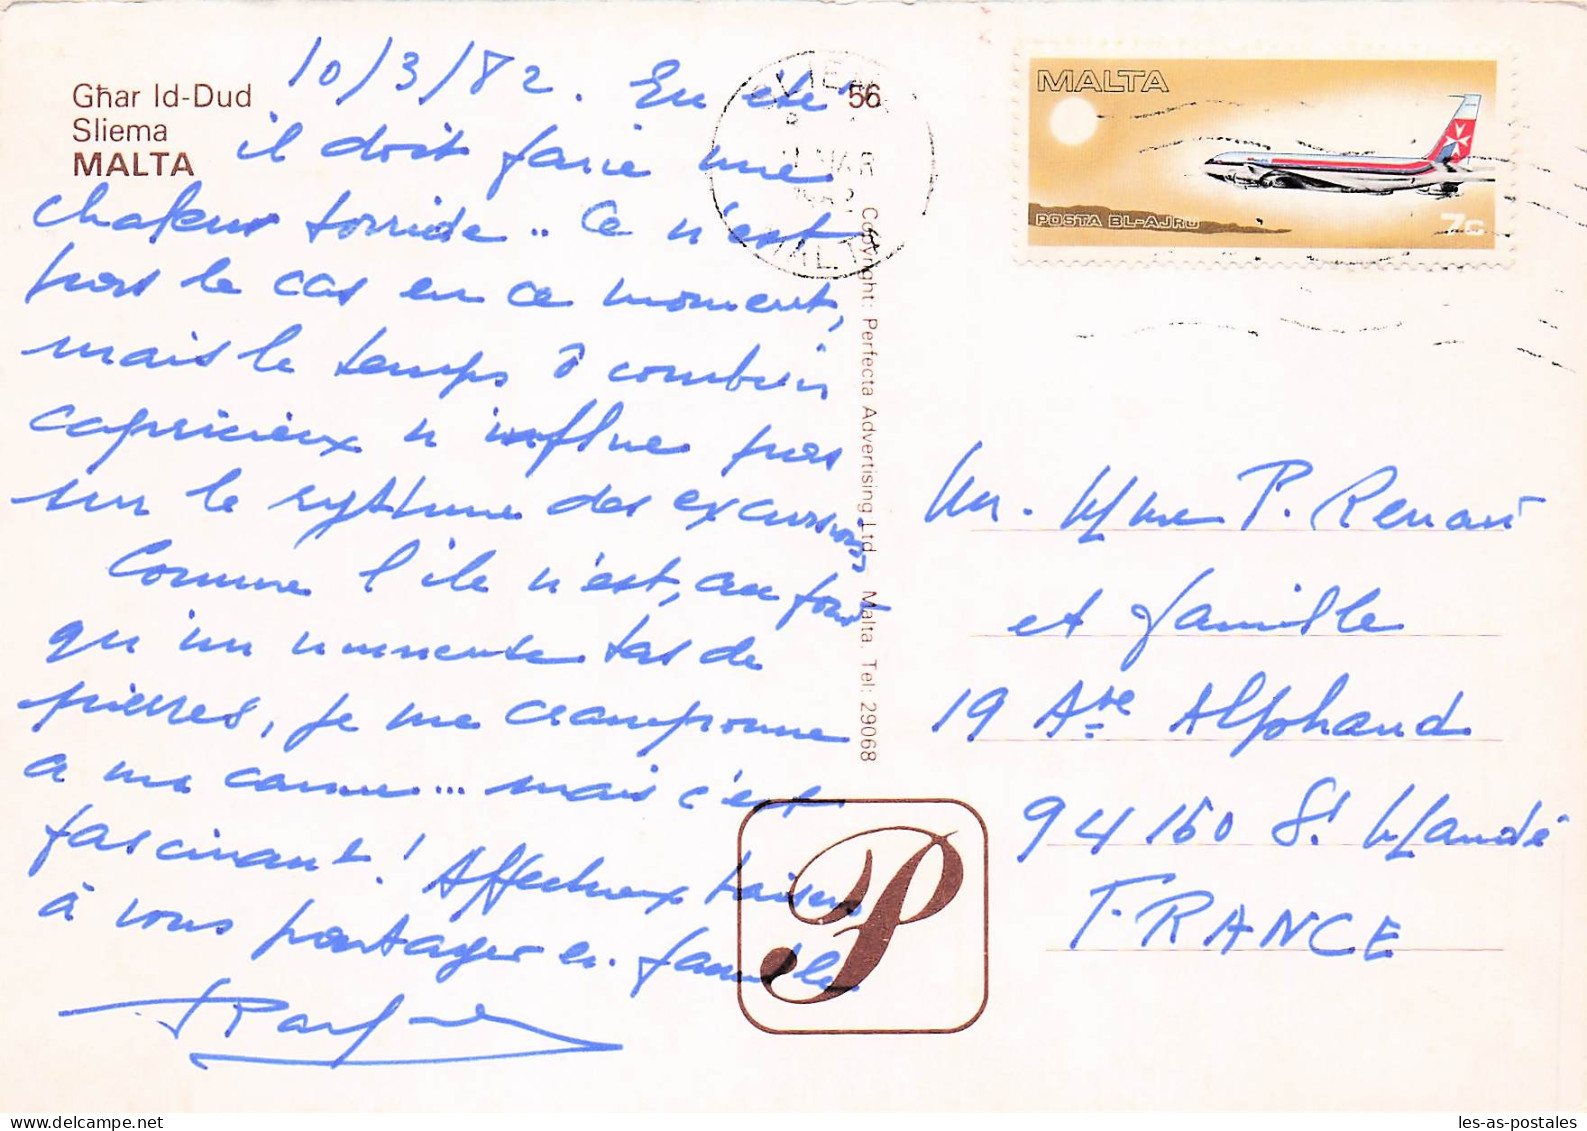 Għar Id-Dud
Sliema
MALTA
56
10/3/82. En été
il doit faire une
chaleur torride.. Ce n'est
pas le cas en ce moment,
mais le temps ô combien
capricieux n'influe pas
sur le rythme des excursions,
Comme l'île n'est, au fond
qu'un immense tas de
pierres, je me cramponne
a ma canne... mais c'est
fascinant! Affectueux baisers
à vous partager en famille
MALTA
POSTA BL-AJRU
7c
SLIEMA
MAR
MALTA
Copyright: Perfecta Advertising Ltd., Malta. Tel: 29068
P
Mr. Mme P. Renard
et famille
19 Ave Alphand
94160 St Mandé
FRANCE
les-as-postales